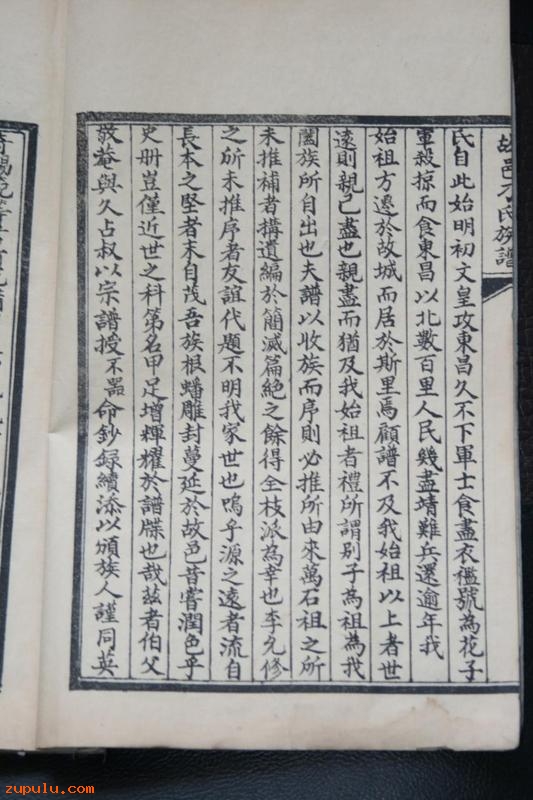 故邑 氏族譜
氏自此始明初文皇攻東昌久不下軍士食盡衣襤號為花子
軍殺掠而食東昌以北數百里人民幾盡靖難兵還逾年我
始祖方遷於故城而居於斯里焉顧譜不及我始祖以上者世
遠則親已盡也親盡而猶及我始祖者禮所謂別子為祖為我
闔族所自出也夫譜以收族而序則必推所由來萬石祖之所
未推補者搆遺編於簡滅篇絕之餘得全枝派為幸也李允修
之所未推序者友誼代題不明我家世也嗚乎源之遠者流自
長本之堅者末自茂吾族根蟠雕封蔓延於故邑昔嘗潤色乎
史册豈僅近世之科第名甲足增輝耀於譜牒也哉茲者伯父
敬菴與久占叔以宗譜授不器命鈔録續添以頒族人謹同英
zupulu.com